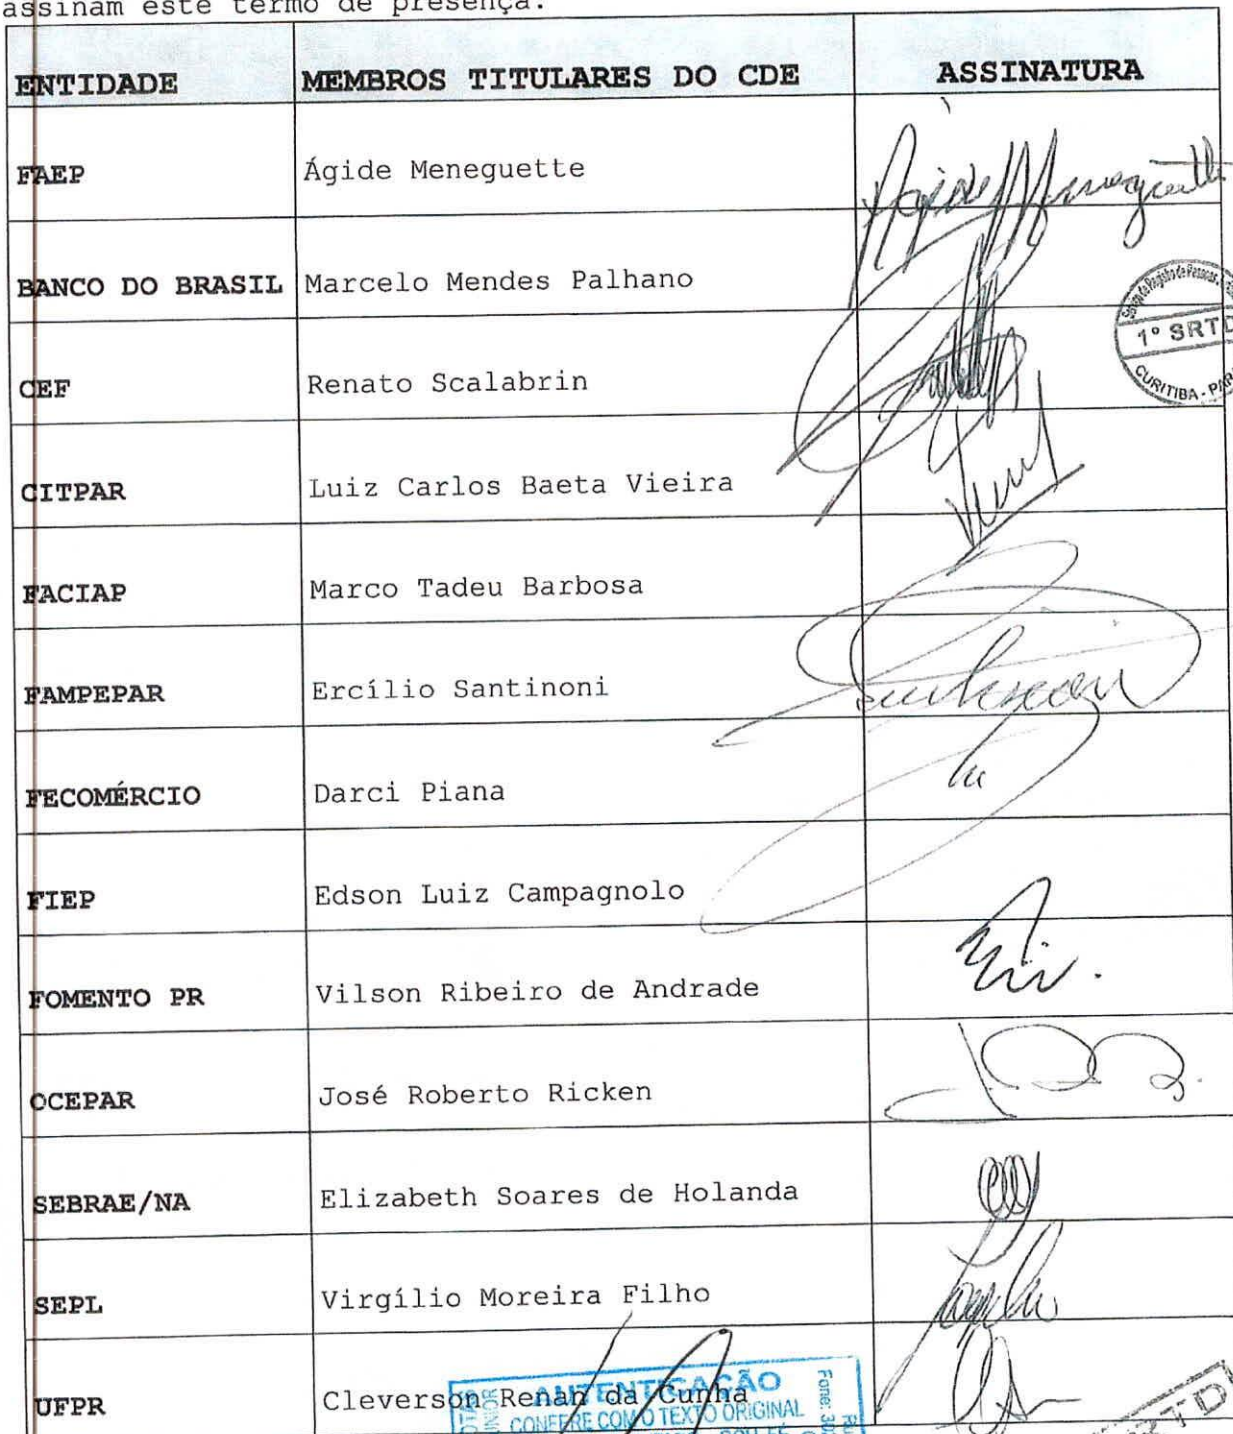 assinam este termo de presença.
ENTIDADE MEMBROS TITULARES DO CDE ASSINATURA
FAEP Ágide Meneguette Ágide Meneguette
BANCO DO BRASIL Marcelo Mendes Palhano
1º SRTD
CURITIBA - PAR
CEF Renato Scalabrin
CITPAR Luiz Carlos Baeta Vieira
FACIAP Marco Tadeu Barbosa
FAMPEPAR Ercílio Santinoni
FECOMÉRCIO Darci Piana
FIEP Edson Luiz Campagnolo
FOMENTO PR Vilson Ribeiro de Andrade
OCEPAR José Roberto Ricken
SEBRAE/NA Elizabeth Soares de Holanda
SEPL Virgílio Moreira Filho
UFPR Cleverson Renan da Cunha
AUTENTICAÇÃO
CONFERE COM O TEXTO ORIGINAL
Fone: 30
RTD